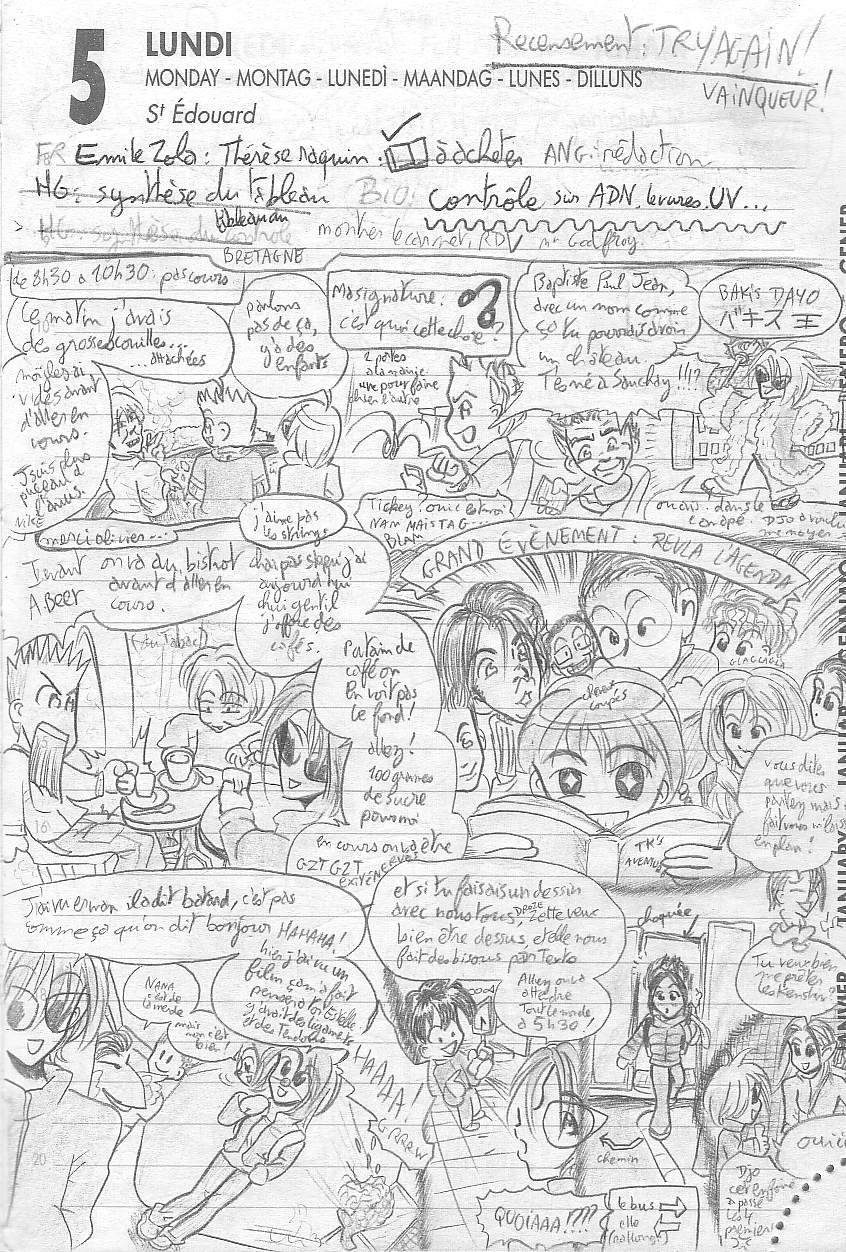 5 LUNDI
MONDAY - MONTAG - LUNEDÌ - MAANDAG - LUNES - DILLUNS
St Édouard
Recensement : TRY AGAIN !
VAINQUEUR !
FÇR Emile Zola : Thérèse Raquin : à acheter ANG : rédaction
HG : synthèse du tableau BIO : contrôle sur ADN, levures, UV...
tableau du
> HG : synthèse du contrôle montrer le carnet, RDV mr Godfroy.
BRETAGNE
de 8h30 à 10h30 : pas cours
Ce matin j'avais
des grosses couilles...
... attachées
moi je les ai
vidés avant
d'aller en
cours.
J'suis plus
puceau à
NIKÉ
parlons
pas de ça,
y'a des
enfants
Ma signature :
c'est quoi cette chose ?
2 potes
à la
une pour faire
l'autre
Baptiste Paul Jean,
avec un nom comme
ça tu pourrais avoir
un château.
T'es né à Sauchay !!!?
BAKIS DAYO
バキス 王
Tickey ! oui c'est moi
NAN MAIS TAG...
BLAM
dans le
canapé. DJO a voulu
me noyer
merci olivier...
j'aime pas
les strings
Twant
A Beer
on va au bistrot
avant d'aller en
cours.
chai pas st'e j'ai
aujourd'hui
chui gentil
j'offre des
cafés.
au Tabac
Putain de
café on
en voit pas
le fond !
allez !
100 grammes
de sucre
pour moi
en cours on va être
GZT GZT
EXITÉ NERVÉS
GRAND ÉVÈNEMENT : REVLA L'AGENDA
GLAGLAGLA
cheveux
coupés
TK'S
AVENUE
vous dites
que vous
partez mais
fait vous
en plan !
J'aime mon il a dit batard, c'est pas
comme ça qu'on dit bonjour HAHAHA !
NANA
c'est de
la merde
mais
non c'est
bien !
hier j'ai vu un
film, ça m'a fait
penser à toi. Et elle
y'avait des ligaments
et des Tendons
HAAAA !
GRRRW
et si tu faisais un dessin
avec nous tous, DROZE Zette veux
bien être dessus, et elle nous
fait des bisous par Texto
Allez on va
attendre
Tout le monde
à 5h30 !
choquée
Tu veux bien
me prêter
les Kenshin ?
chemin
QUOIAAA !!??
le bus
elle
(rallonge)
oui
Djo
a passé
les 4
premiers
16
20
JANVIER JANUARY JANUAR GENNAIO JANUARI ENERO GENER